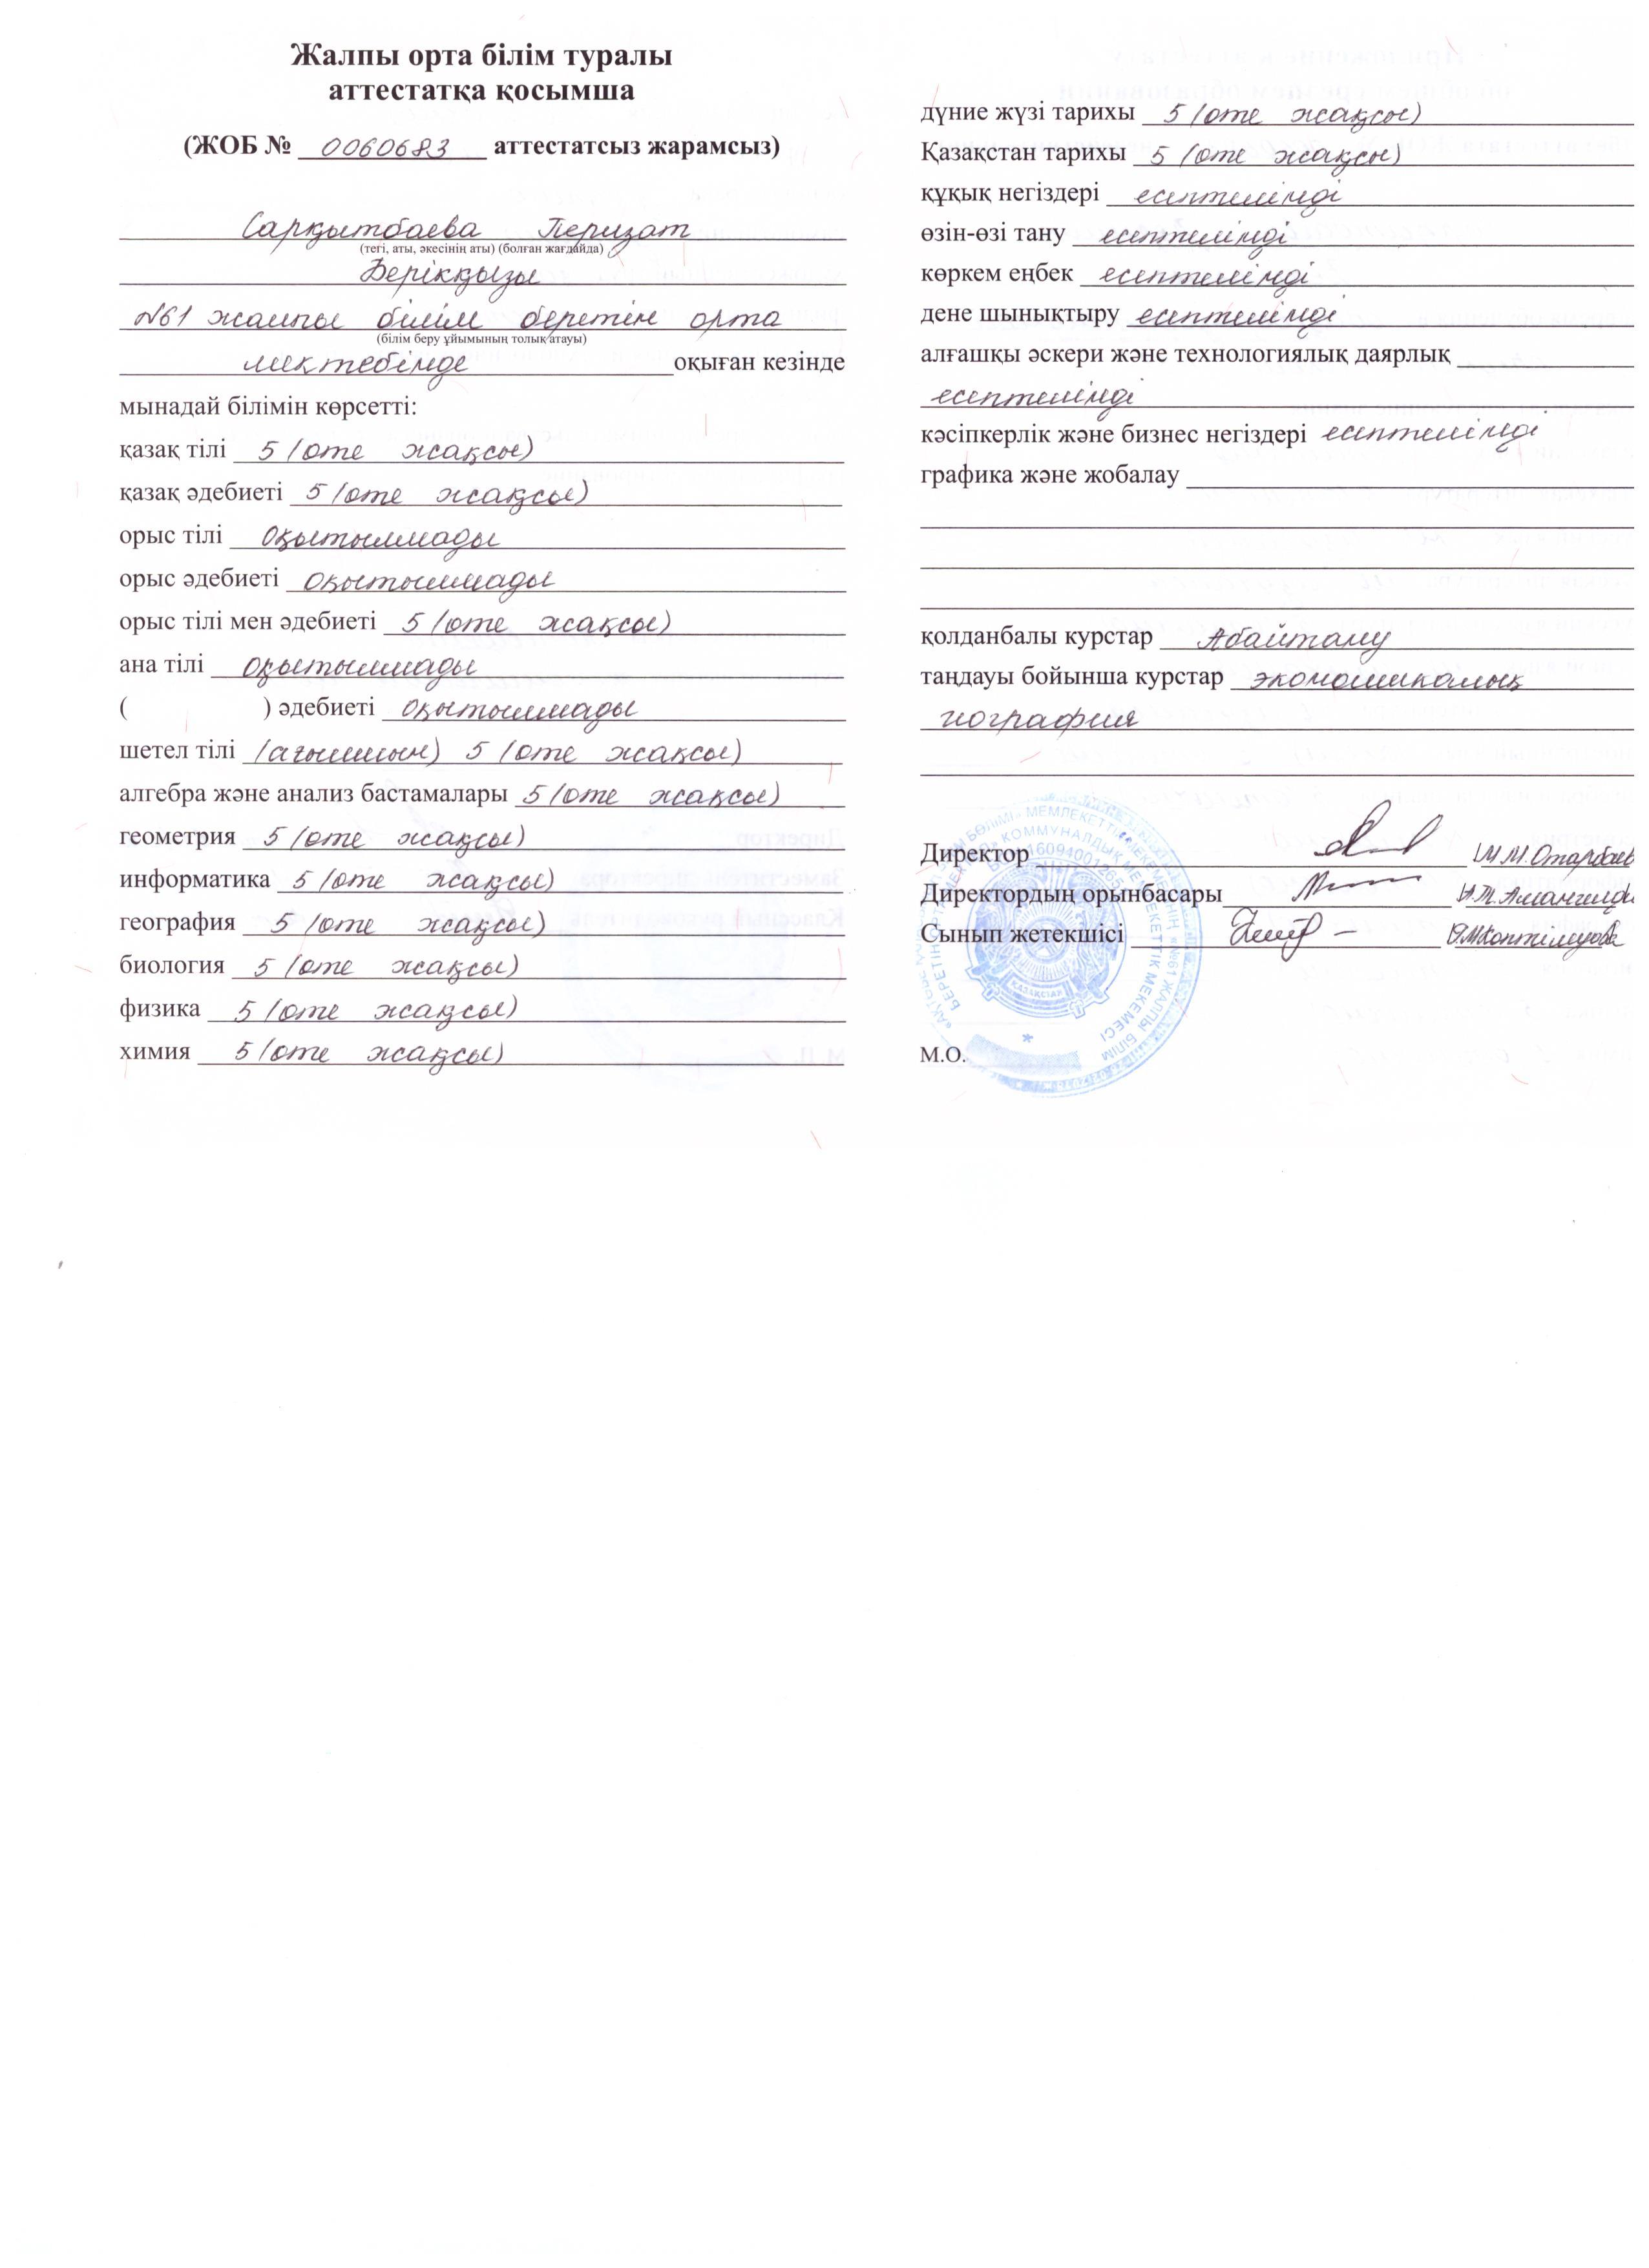 Жалпы орта білім туралы
аттестатқа қосымша
(ЖОБ № 0060683 аттестатсыз жарамсыз)
Сарқытбаева Перизат
(тегі, аты, әкесінің аты) (болған жағдайда)
Берікқызы
№61 жалпы білім беретін орта
(білім беру ұйымының толық атауы)
мектебінде оқыған кезінде
мынадай білімін көрсетті:
қазақ тілі 5 (өте жақсы)
қазақ әдебиеті 5 (өте жақсы)
орыс тілі Оқытылмады
орыс әдебиеті Оқытылмады
орыс тілі мен әдебиеті 5 (өте жақсы)
ана тілі Оқытылмады
( ) әдебиеті Оқытылмады
шетел тілі (ағылшын) 5 (өте жақсы)
алгебра және анализ бастамалары 5 (өте жақсы)
геометрия 5 (өте жақсы)
информатика 5 (өте жақсы)
география 5 (өте жақсы)
биология 5 (өте жақсы)
физика 5 (өте жақсы)
химия 5 (өте жақсы)
дүние жүзі тарихы 5 (өте жақсы)
Қазақстан тарихы 5 (өте жақсы)
құқық негіздері есептелінді
өзін-өзі тану есептелінді
көркем еңбек есептелінді
дене шынықтыру есептелінді
алғашқы әскери және технологиялық даярлық
есептелінді
кәсіпкерлік және бизнес негіздері есептелінді
графика және жобалау
қолданбалы курстар Абайтану
таңдауы бойынша курстар экономикалық
география
Директор
Директордың орынбасары
Сынып жетекшісі
М.О.
ҚАЗАҚСТАН